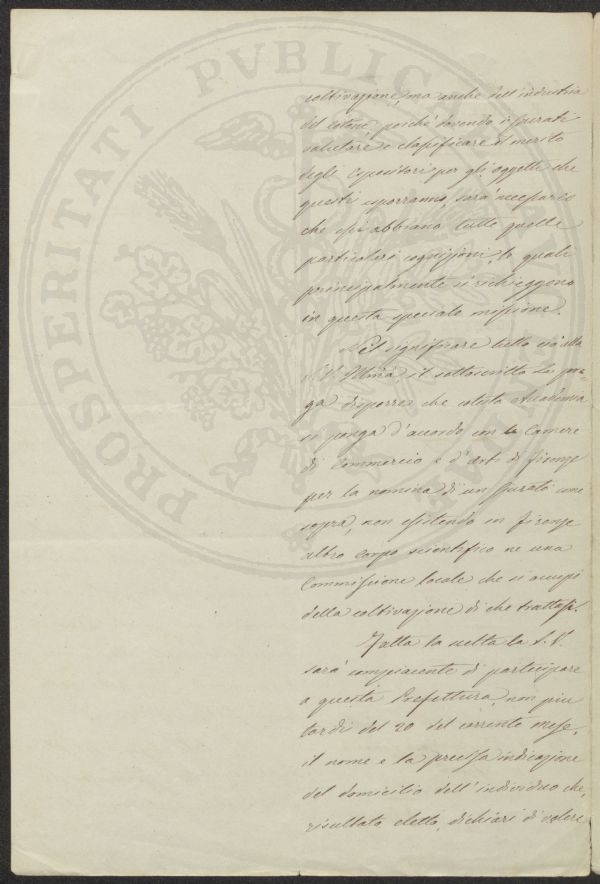 coltivazione, ma anche dell'industria
del cotone, poiché dovendo i giurati
valutare e classificare il merito
degli Espositori per gli oggetti che
questi esporranno, sarà necessario
che essi abbiano tutte quelle
particolari cognizioni, le quali
principalmente si richieggono
in questa speciale missione.
Nel significare tutto ciò alla
S.V. Illma il sottoscritto La pre-
ga disporre che cotesta Accademia
si ponga d'accordo con la Camera
di Commercio e d'arti di Firenze
per la nomina di un Giurato come
sopra, non esistendo in Firenze
altro corpo scientifico ne una
Commissione locale che si occupi
della coltivazione di che trattasi.
Fatta la scelta la S.V.
sarà compiacente di partecipare
a questa Prefettura, non più
tardi del 20 del corrente mese,
il nome e la precisa indicazione
del domicilio dell'individuo che,
risultato eletto, dichiari di volere
PROSPERITATI PVBLICAE